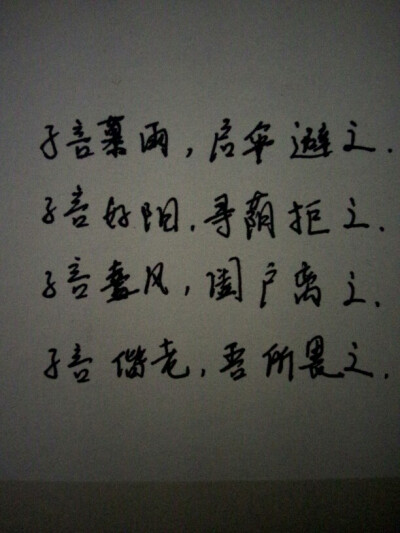 子言慕雨，启伞避之.
子言好阳，寻荫拒之.
子言喜风，阖户离之.
子言偕老，吾所畏之.